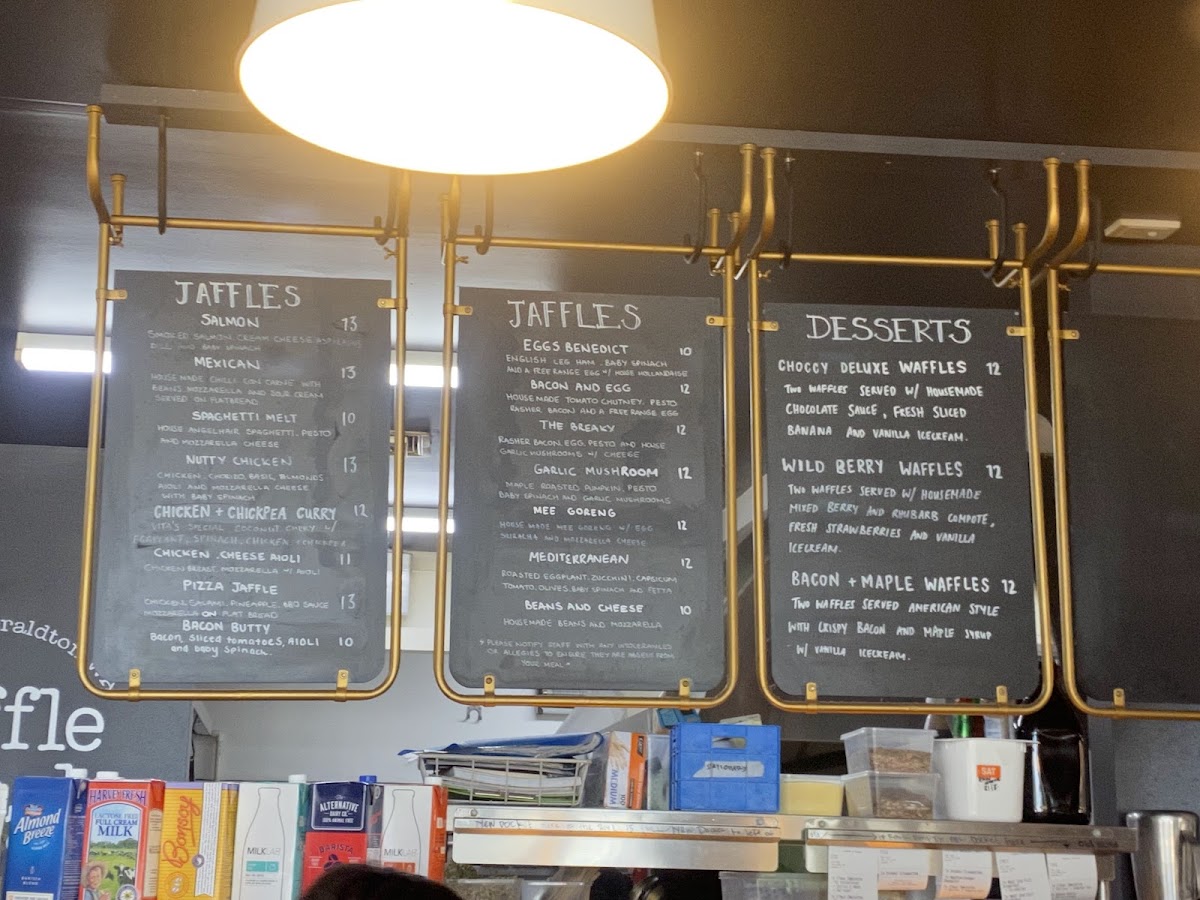 JAFFLES
SALMON 13
SMOKED SALMON, CREAM CHEESE, ASPARAGUS
DILL AND BABY SPINACH
MEXICAN 13
HOUSE MADE CHILLI CON CARNE WITH
BEANS, MOZZARELLA AND SOUR CREAM
SERVED ON FLATBREAD
SPAGHETTI MELT 10
HOUSE ANGELHAIR SPAGHETTI, PESTO
AND MOZZARELLA CHEESE
NUTTY CHICKEN 13
CHICKEN, CHORIZO, BASIL, ALMONDS
AIOLI AND MOZZARELLA CHEESE
WITH BABY SPINACH
CHICKEN + CHICKPEA CURRY 12
VITA'S SPECIAL COCONUT CURRY W/
EGGPLANT, SPINACH, CHICKEN, CHICKPEA
CHICKEN, CHEESE AIOLI 11
CHICKEN BREAST, MOZZARELLA W/ AIOLI
PIZZA JAFFLE 13
CHICKEN, SALAMI, PINEAPPLE, BBQ SAUCE
MOZZARELLA ON FLAT BREAD
BACON BUTTY
Bacon, sliced tomatoes, AIOLI 10
and baby spinach.
JAFFLES
EGGS BENEDICT 10
ENGLISH LEG HAM, BABY SPINACH
AND A FREE RANGE EGG W/ HOUSE HOLLANDAISE
BACON AND EGG 12
HOUSE MADE TOMATO CHUTNEY, PESTO
RASHER, BACON AND A FREE RANGE EGG
THE BREAKY 12
RASHER BACON, EGG, PESTO AND HOUSE
GARLIC MUSHROOMS W/ CHEESE
GARLIC MUSHROOM 12
MAPLE ROASTED PUMPKIN, PESTO
BABY SPINACH AND GARLIC MUSHROOMS
MEE GORENG
HOUSE MADE MEE GORENG W/ EGG 12
SRIRACHA AND MOZZARELLA CHEESE
MEDITERRANEAN 12
ROASTED EGGPLANT, ZUCCHINI, CAPSICUM
TOMATO, OLIVES, BABY SPINACH AND FETTA
BEANS AND CHEESE 10
HOUSEMADE BEANS AND MOZZARELLA
* PLEASE NOTIFY STAFF WITH ANY INTOLERANCES
OR ALLERGIES TO ENSURE THEY ARE FROM
YOUR MEAL *
DESSERTS
CHOCCY DELUXE WAFFLES 12
TWO WAFFLES SERVED W/ HOUSEMADE
CHOCOLATE SAUCE, FRESH SLICED
BANANA AND VANILLA ICECREAM.
WILD BERRY WAFFLES 12
TWO WAFFLES SERVED W/ HOUSEMADE
MIXED BERRY AND RHUBARB COMPOTE,
FRESH STRAWBERRIES AND VANILLA
ICECREAM.
BACON + MAPLE WAFFLES 12
TWO WAFFLES SERVED AMERICAN STYLE
WITH CRISPY BACON AND MAPLE SYRUP
W/ VANILLA ICECREAM.
raldton
ffle
Almond
Breeze
BARISTA BLEND
HARVEY FRESH
LACTOSE FREE
FULL CREAM
MILK
Bonsoy
MILKLAB
ALTERNATIVE
DAIRY CO.
100% ANIMAL FREE
BARISTA
MILKLAB
SAT